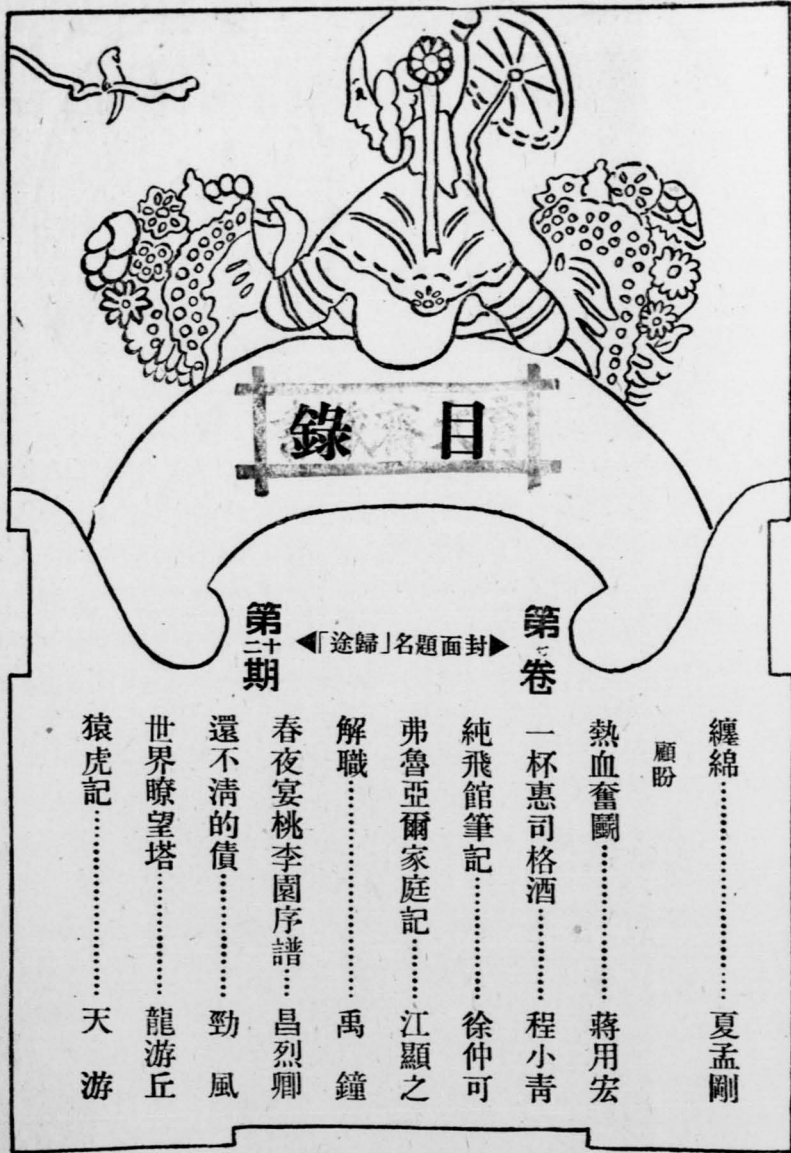 目錄
第七卷
▶封面題名「歸途」◀
第十二期
纏綿……………………夏孟剛
顧盼
熱血奮鬬………………蔣用宏
一杯惠司格酒…………程小青
純飛館筆記……………徐仲可
弗魯亞爾家庭記………江顯之
解職……………………禹鐘
春夜宴桃李園序譜……昌烈卿
還不清的債……………勁風
世界瞭望塔……………龍游丘
猿虎記…………………天游